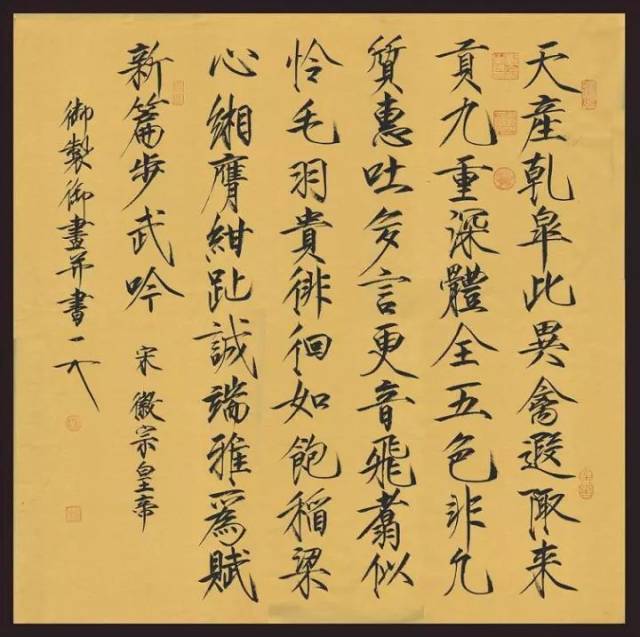 天產乾皐此異禽遐陬来
貢九重深體全五色非凡
質惠吐多言更音飛翥似
怜毛羽貴徘徊如飽稻粱
心緗膺紺趾誠端雅爲賦
新篇步武吟 宋徽宗皇帝
御製御畫并書